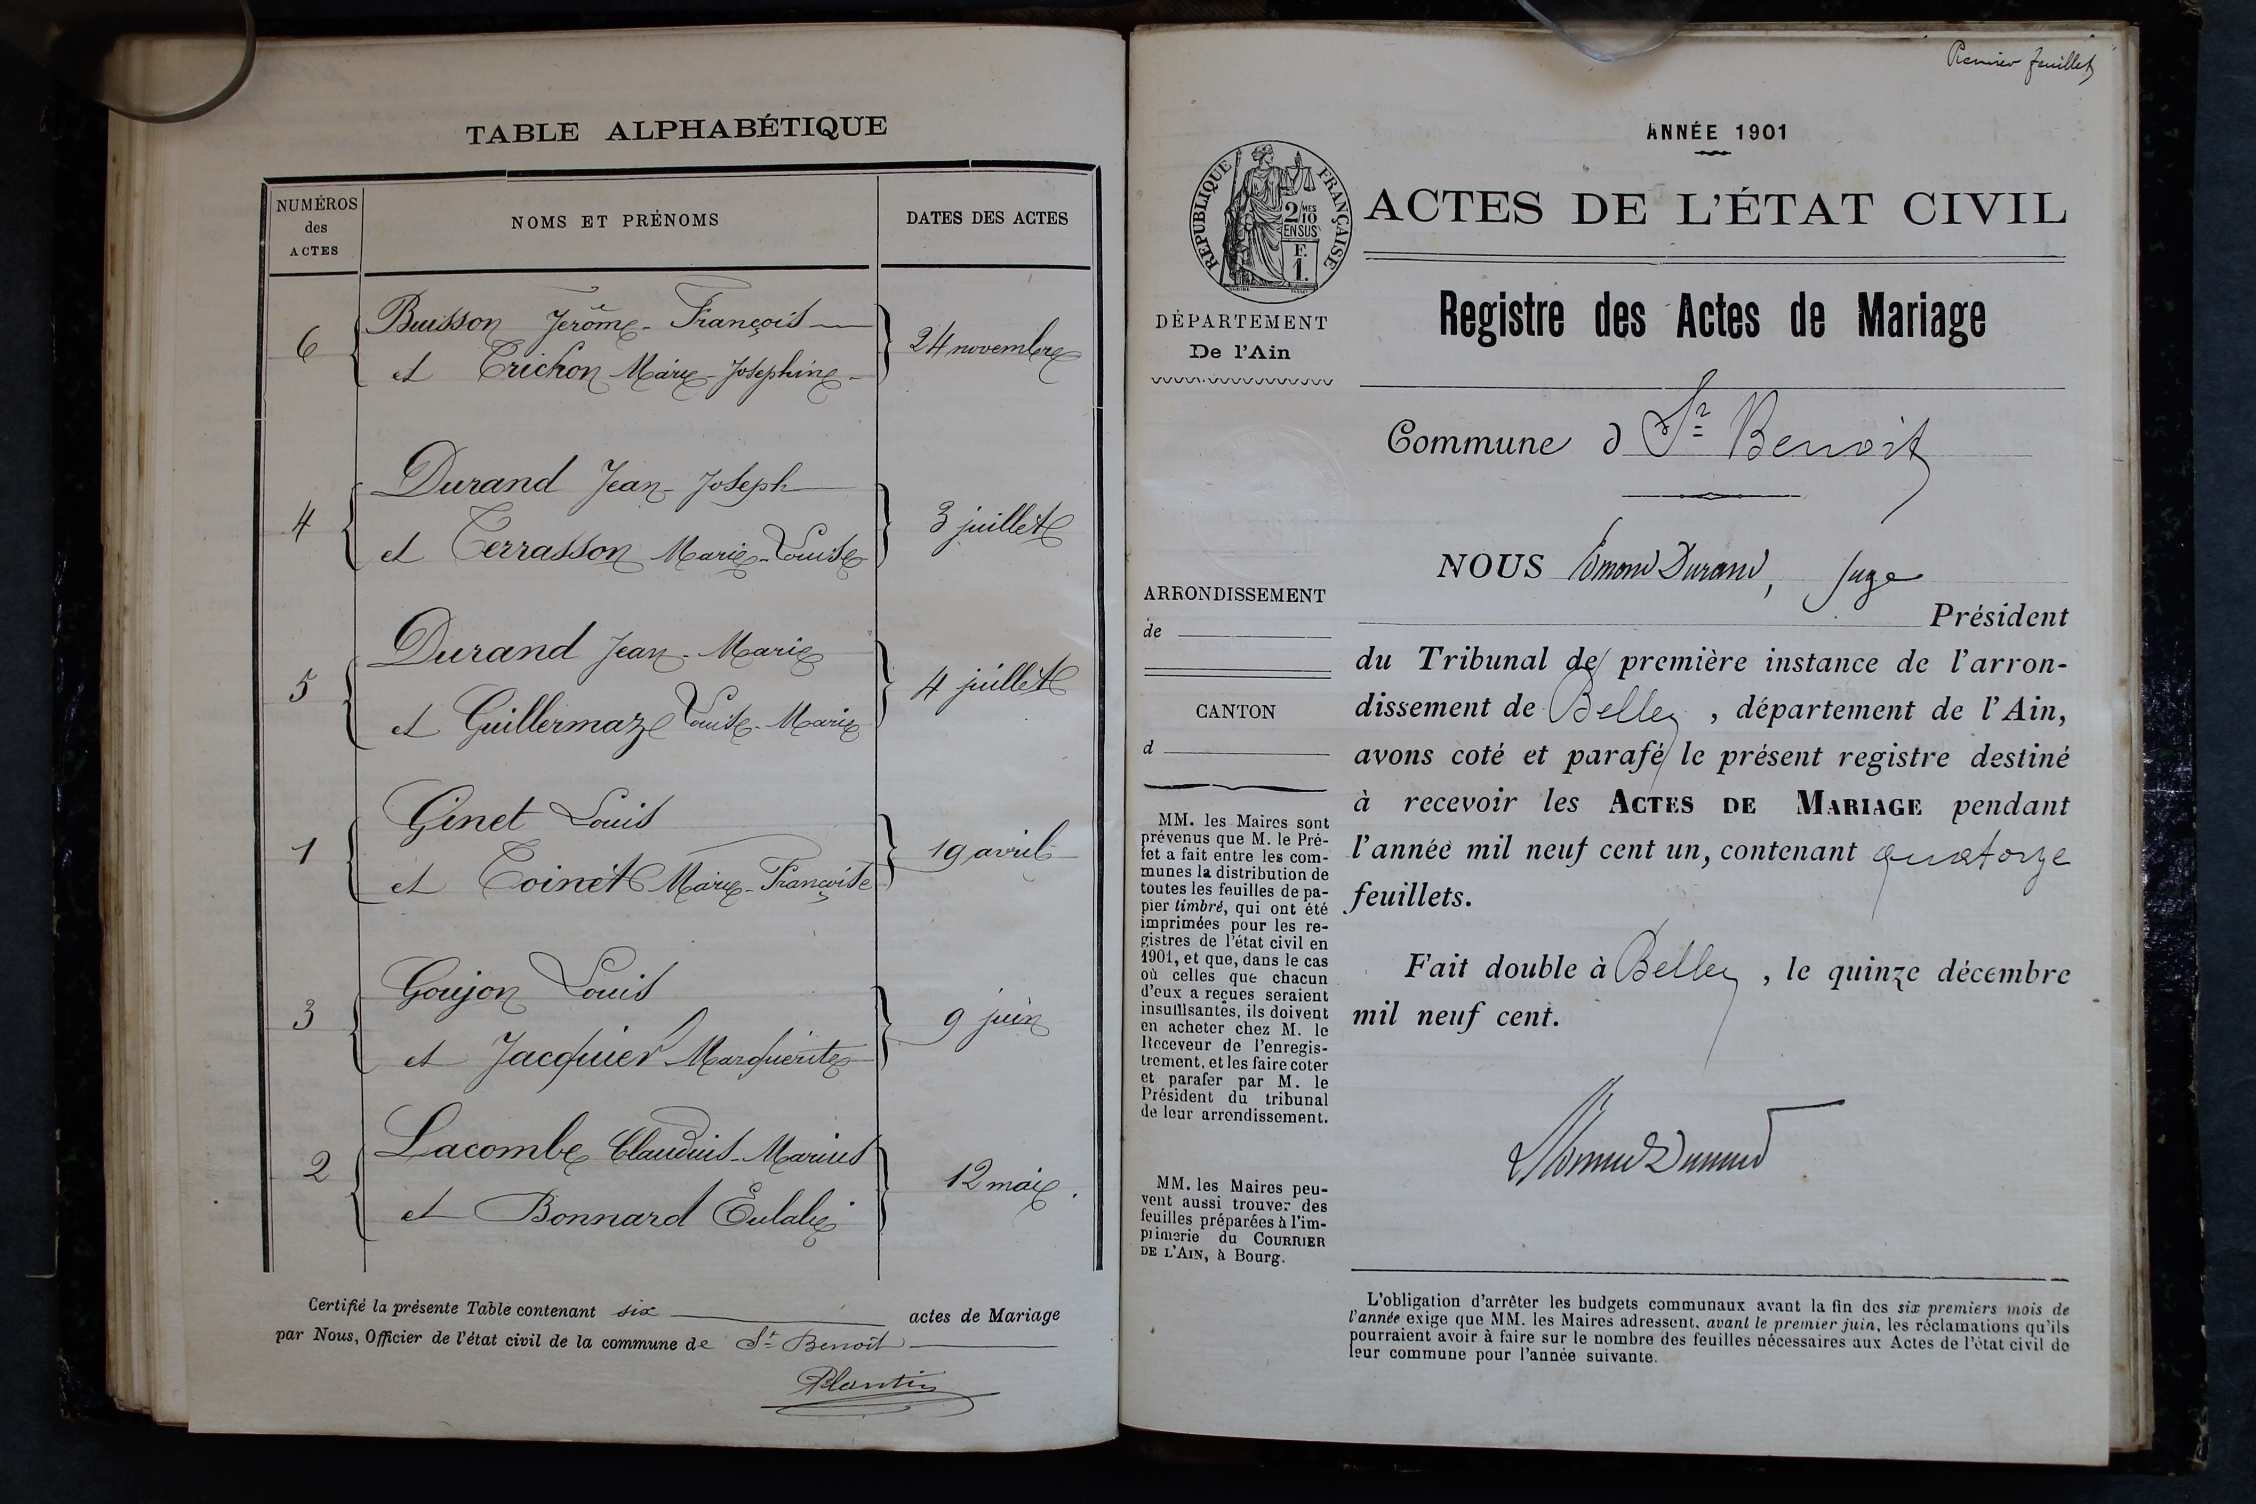 TABLE ALPHABÉTIQUE
NUMÉROS des ACTES
NOMS ET PRÉNOMS
DATES DES ACTES
6
Buisson Jerôme-François
et Trichon Marie-Josephine
24 novembre
4
Durand Jean-Joseph
et Terrasson Marie-Louise
3 juillet
5
Durand Jean-Marie
et Guillermaz Louise-Marie
4 juillet
1
Ginet Louis
et Coinet Marie-Françoise
19 avril
3
Goujon Louis
et Jacquier Marguerite
9 juin
2
Lacombe Claudius-Marius
et Bonnard Eulalie
12 mai
Certifié la présente Table contenant six actes de Mariage
par Nous, Officier de l'état civil de la commune de St Benoît
Plantin
Premier feuillet
ANNÉE 1901
RÉPUBLIQUE FRANÇAISE
2 MES
10
EN SUS
F.
1.
ACTES DE L'ÉTAT CIVIL
Registre des Actes de Mariage
DÉPARTEMENT
De l'Ain
Commune d St Benoit
ARRONDISSEMENT
de
CANTON
d
MM. les Maires sont
prévenus que M. le Pré-
fet a fait entre les com-
munes la distribution de
toutes les feuilles de pa-
pier timbré, qui ont été
imprimées pour les re-
gistres de l'état civil en
1901, et que, dans le cas
où celles que chacun
d'eux a reçues seraient
insuffisantes, ils doivent
en acheter chez M. le
Receveur de l'enregis-
trement, et les faire coter
et parafer par M. le
Président du tribunal
de leur arrondissement.
MM. les Maires peu-
vent aussi trouver des
feuilles préparées à l'im-
primerie du COURRIER
DE L'AIN, à Bourg.
NOUS Edmond Durand, Juge
Président
du Tribunal de première instance de l'arron-
dissement de Belley, département de l'Ain,
avons coté et parafé le présent registre destiné
à recevoir les ACTES DE MARIAGE pendant
l'année mil neuf cent un, contenant quatorze
feuillets.
Fait double à Belley, le quinze décembre
mil neuf cent.
Edmond Durand
L'obligation d'arrêter les budgets communaux avant la fin des six premiers mois de
l'année exige que MM. les Maires adressent, avant le premier juin, les réclamations qu'ils
pourraient avoir à faire sur le nombre des feuilles nécessaires aux Actes de l'état civil de
leur commune pour l'année suivante.